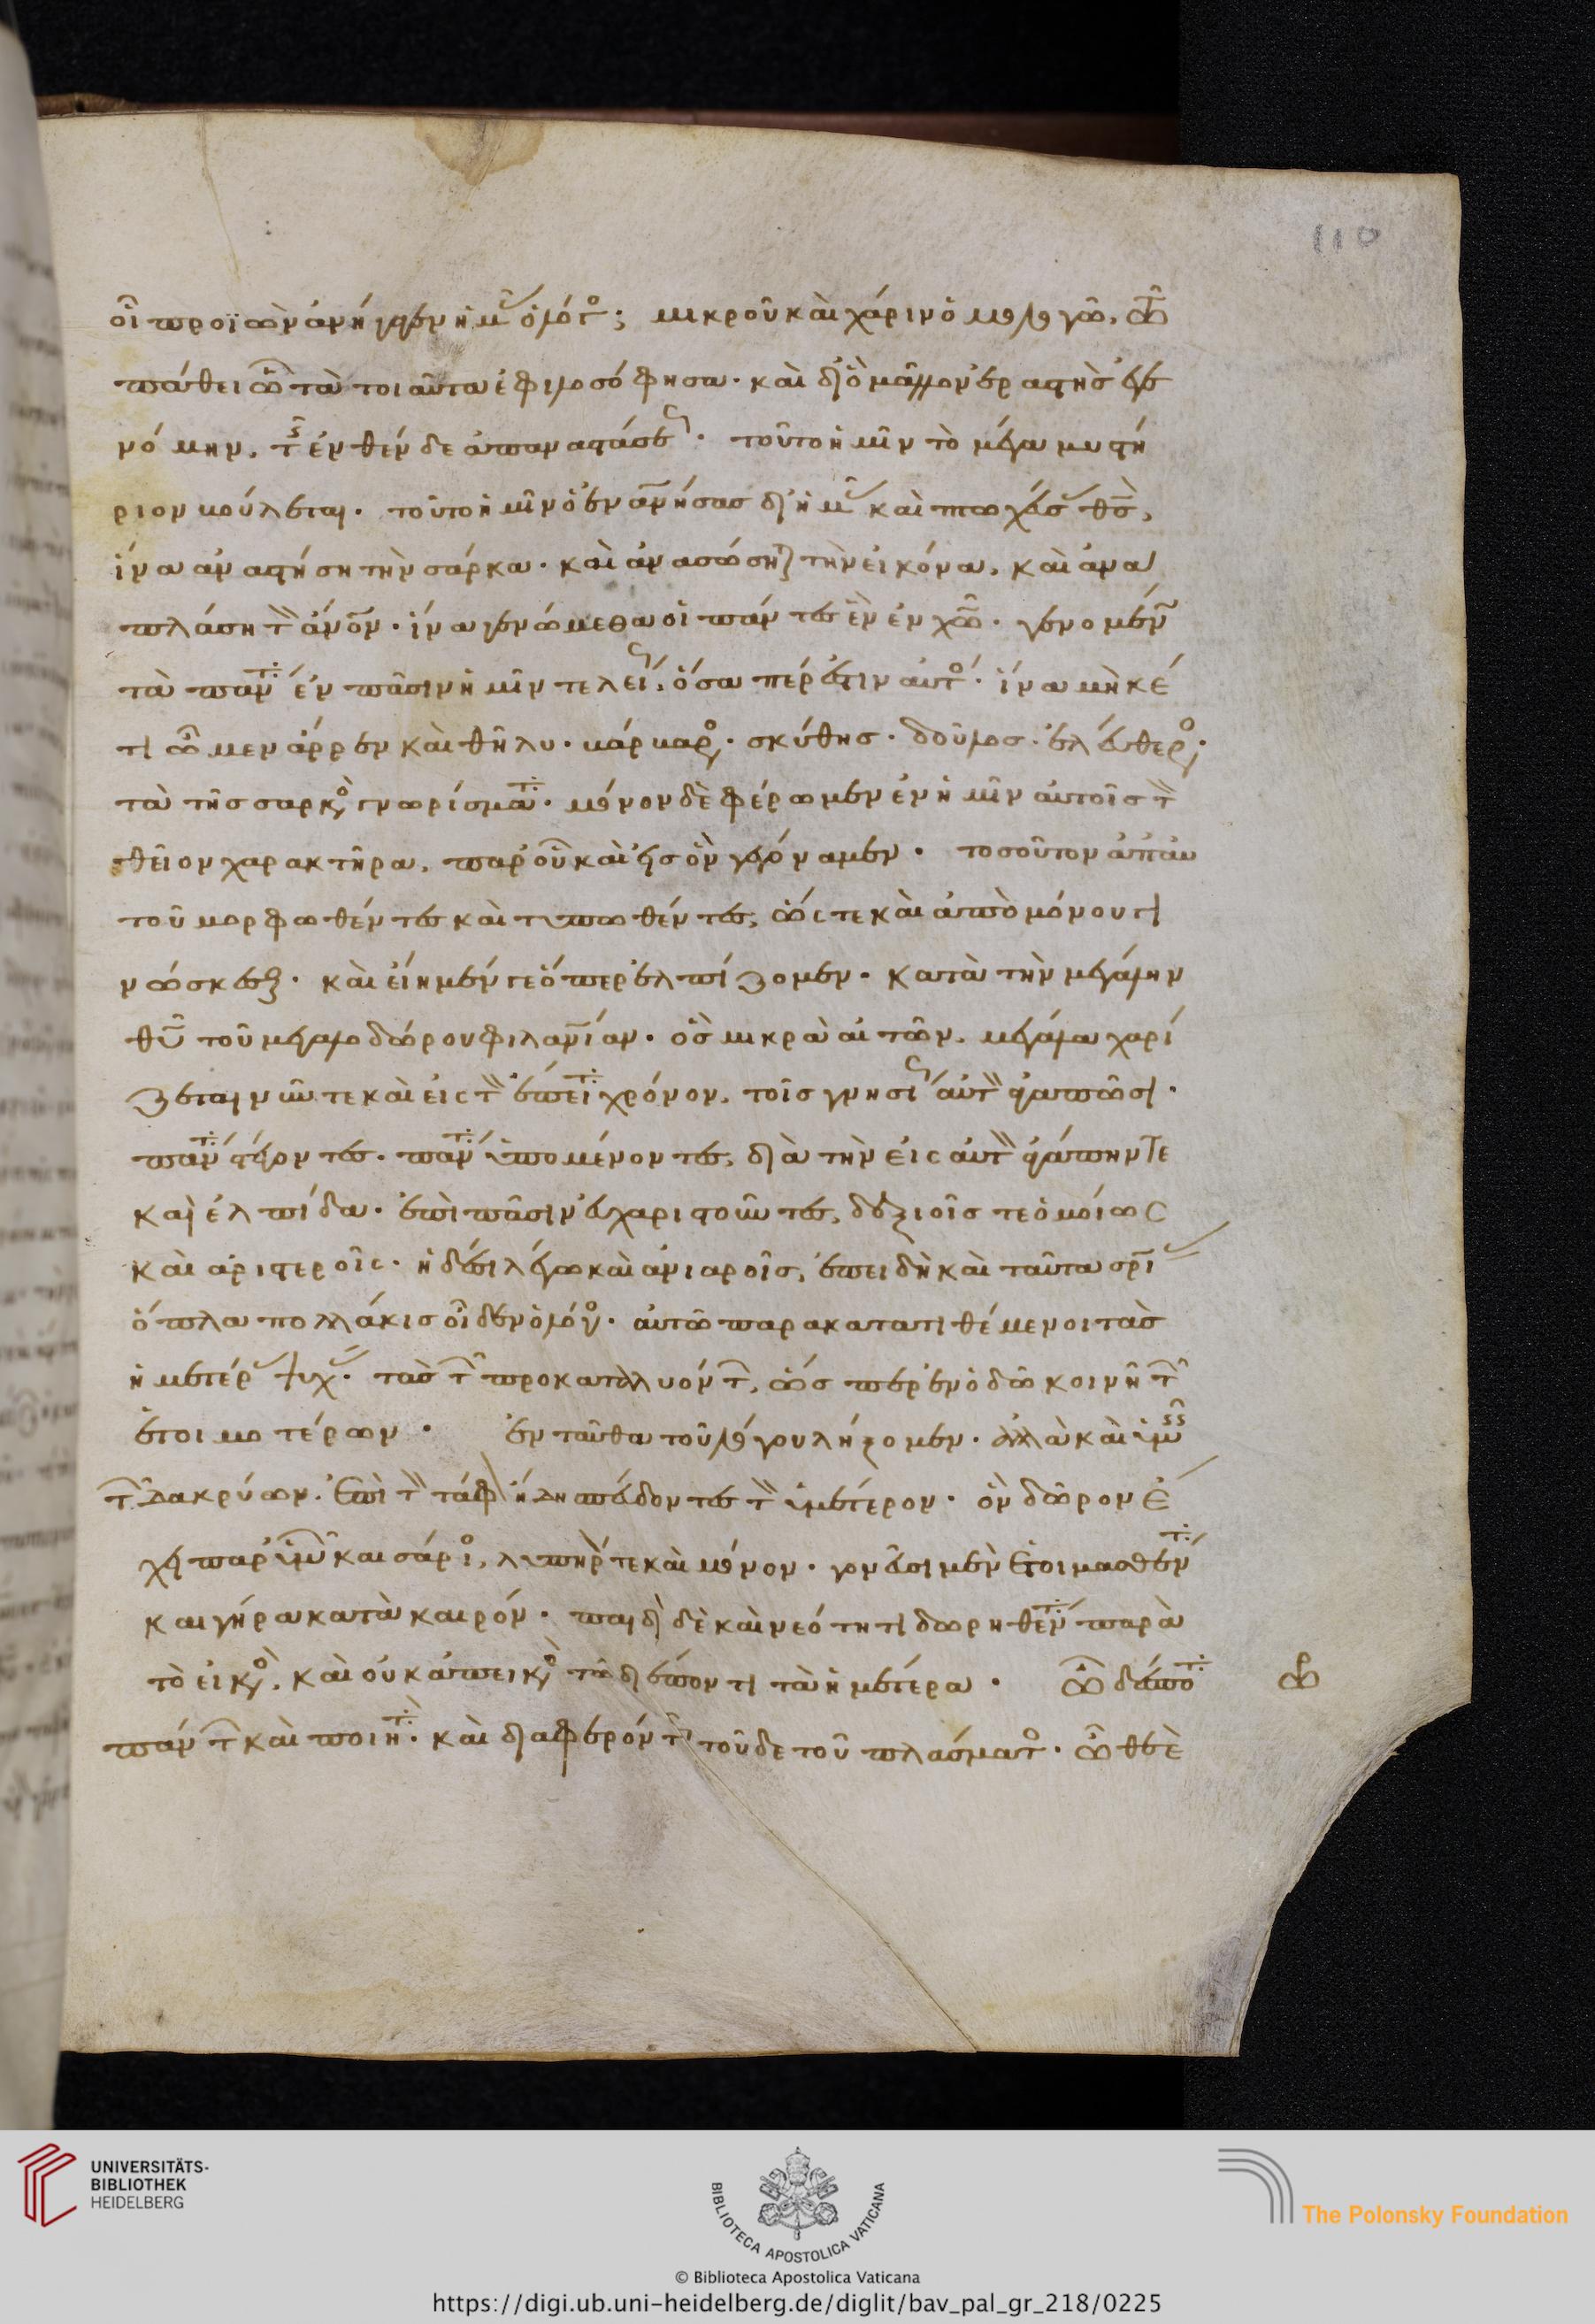 110
οἷ προϊὼν ἀνήγαγεν ἡμᾶς ὁ λόγος; μικροῦ καὶ χάριν ὁμολογῶ τῷ
πάθει ὧ τὰ τοιαῦτα ἐφιλοσόφησα· καὶ δι' ὃ μᾶλλον ἐραστὴς ἐγε
νόμην, τῆς ἐνθένδε ἀπαναστάσεως· τοῦτο ἡμῖν τὸ μέγα μυστή
ριον βούλεται· τοῦτο ἡμῖν ὁ ἐνανθρωπήσας δι' ἡμᾶς καὶ πτωχεύσας θς,
ἵνα ἀναστήση τὴν σάρκα· καὶ ἀνασώσηται τὴν εἰκόνα, καὶ ἀνα
πλάση τὸν ἄνον· ἵνα γενώμεθα οἱ πάντες ἓν ἐν χῶ· γενομένω
τὰ πάντα ἐν πᾶσιν ἡμῖν τελείως, ὅσα πέρ ἐστιν αὐτός· ἵνα μηκέ
τι ὦμεν ἄρρεν καὶ θῆλυ· βάρβαρος· σκύθης· δοῦλος· ἐλεύθερος·
τὰ τῆς σαρκὸς γνωρίσματα· μόνον δὲ φέρωμεν ἐν ἡμῖν αὐτοῖς τὸν
θεῖον χαρακτῆρα, παρ' οὗ καὶ εἰς ὃν γεγόναμεν· τοσοῦτον ἀπ' αὐ
τοῦ μορφωθέντες καὶ τυπωθέντες, ὥστε καὶ ἀπὸ μόνου γι
νώσκεσθαι· καὶ εἴημέν γε ὅπερ ἐλπίζομεν· κατὰ τὴν μεγάλην
θυ τοῦ μεγαλοδώρου φιλανίαν· ὃς μικρὰ αἰτῶν, μεγάλα χαρί
ζεται νῦν τε καὶ εἰς τὸν ἔπειτα χρόνον, τοῖς γνησίως αὐτὸν ἀγαπῶσι·
πάντα στέγοντες· πάντα ὑπομένοντες, διὰ τὴν εἰς αὐτὸν ἀγάπην τε
καὶ ἐλπίδα· ἐπὶ πᾶσιν εὐχαριστοῦντες, δεξιοῖς τε ὁμοίως
καὶ ἀριστεροῖς· ἡδέσι λέγω καὶ ἀνιαροῖς, ἐπειδὴ καὶ ταῦτα σρίας
ὅπλα πολλάκις οἶδεν ὁ λόγος· αὐτῶ παρακατατιθέμενοι τὰς
ἡμετέρας ψυχάς· τὰς τῶν προκαταλυόντων, ὥσπερ ἐν ὁδῶ κοινῆ τῶν
ἑτοιμοτέρων· ἐνταῦθα τοῦ λόγου λήξομεν· ἀλλὰ καὶ ὑμεῖς
τῶν δακρύων· ἐπὶ τὸν τάφον ἤδη σπεύδοντες τὸν ὑμέτερον· ὃν δῶρον ἔ
χει παρ' ὑμῶν καισάριος, λυπηρόν τε καὶ μόνον· γονεῦσι μὲν ἑτοιμασθέντα
και γήρα κατὰ καιρόν· παιδὶ δὲ καὶ νεότητι δωρηθέντα παρὰ
τὸ εἰκός, καὶ οὐκ ἀπεικὸς τῶ διέποντι τὰ ἡμέτερα· ὦ δέσποτα
πάντων καὶ ποιητά· καὶ διαφερόντως τοῦδε τοῦ πλάσματος· ὦ θεὲ
UNIVERSITÄTS-
BIBLIOTHEK
HEIDELBERG
BIBLIOTECA APOSTOLICA VATICANA
The Polonsky Foundation
© Biblioteca Apostolica Vaticana
https://digi.ub.uni-heidelberg.de/diglit/bav_pal_gr_218/0225